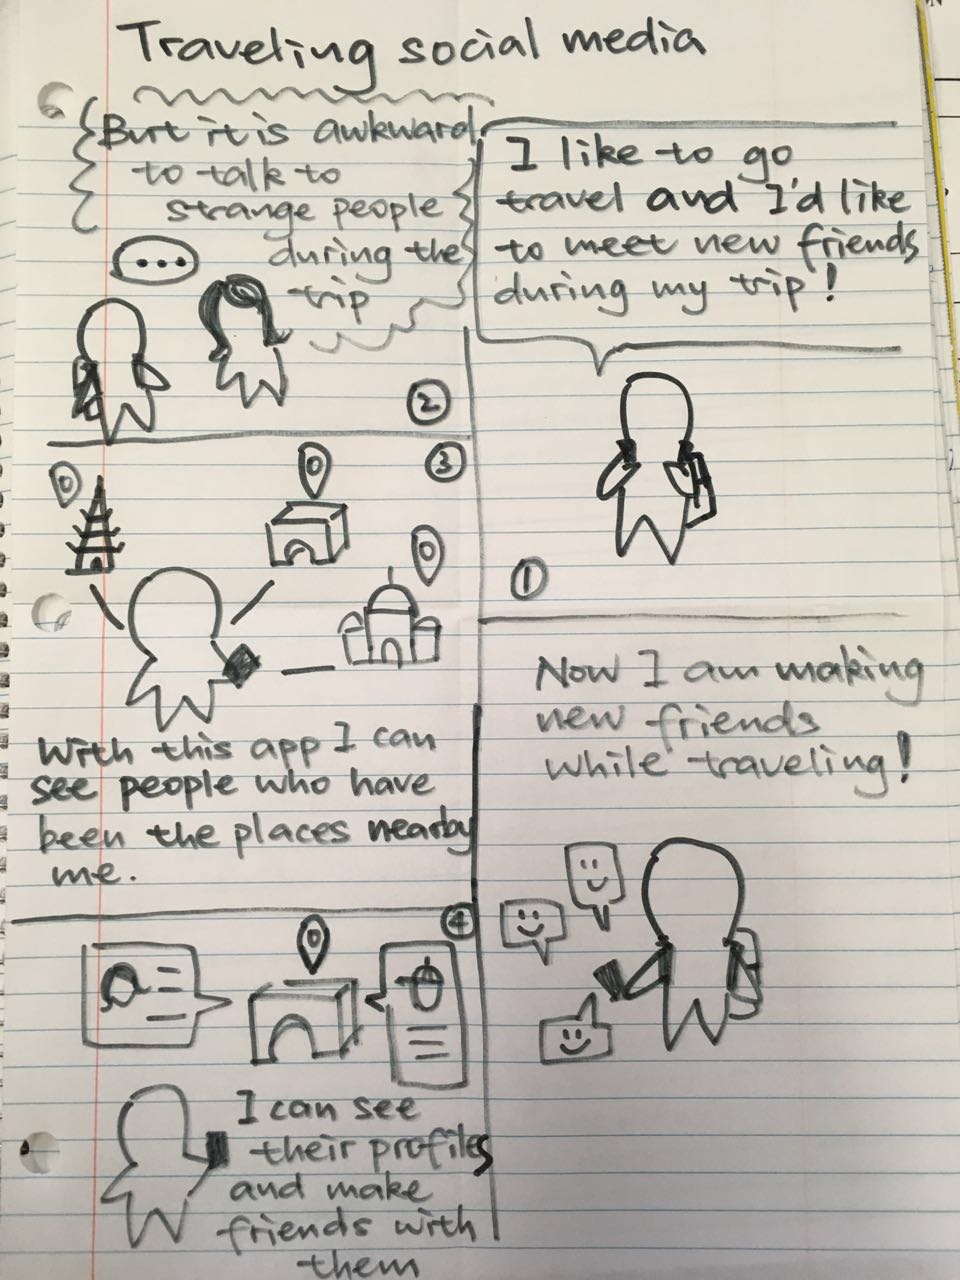 Traveling social media
I like to go
travel and I'd like
to meet new friends
during my trip!
①
But it is awkward
to talk to
strange people
during the
trip
②
③
With this app I can
see people who have
been the places nearby
me.
④
I can see
their profiles
and make
friends with
them
Now I am making
new friends
while traveling!